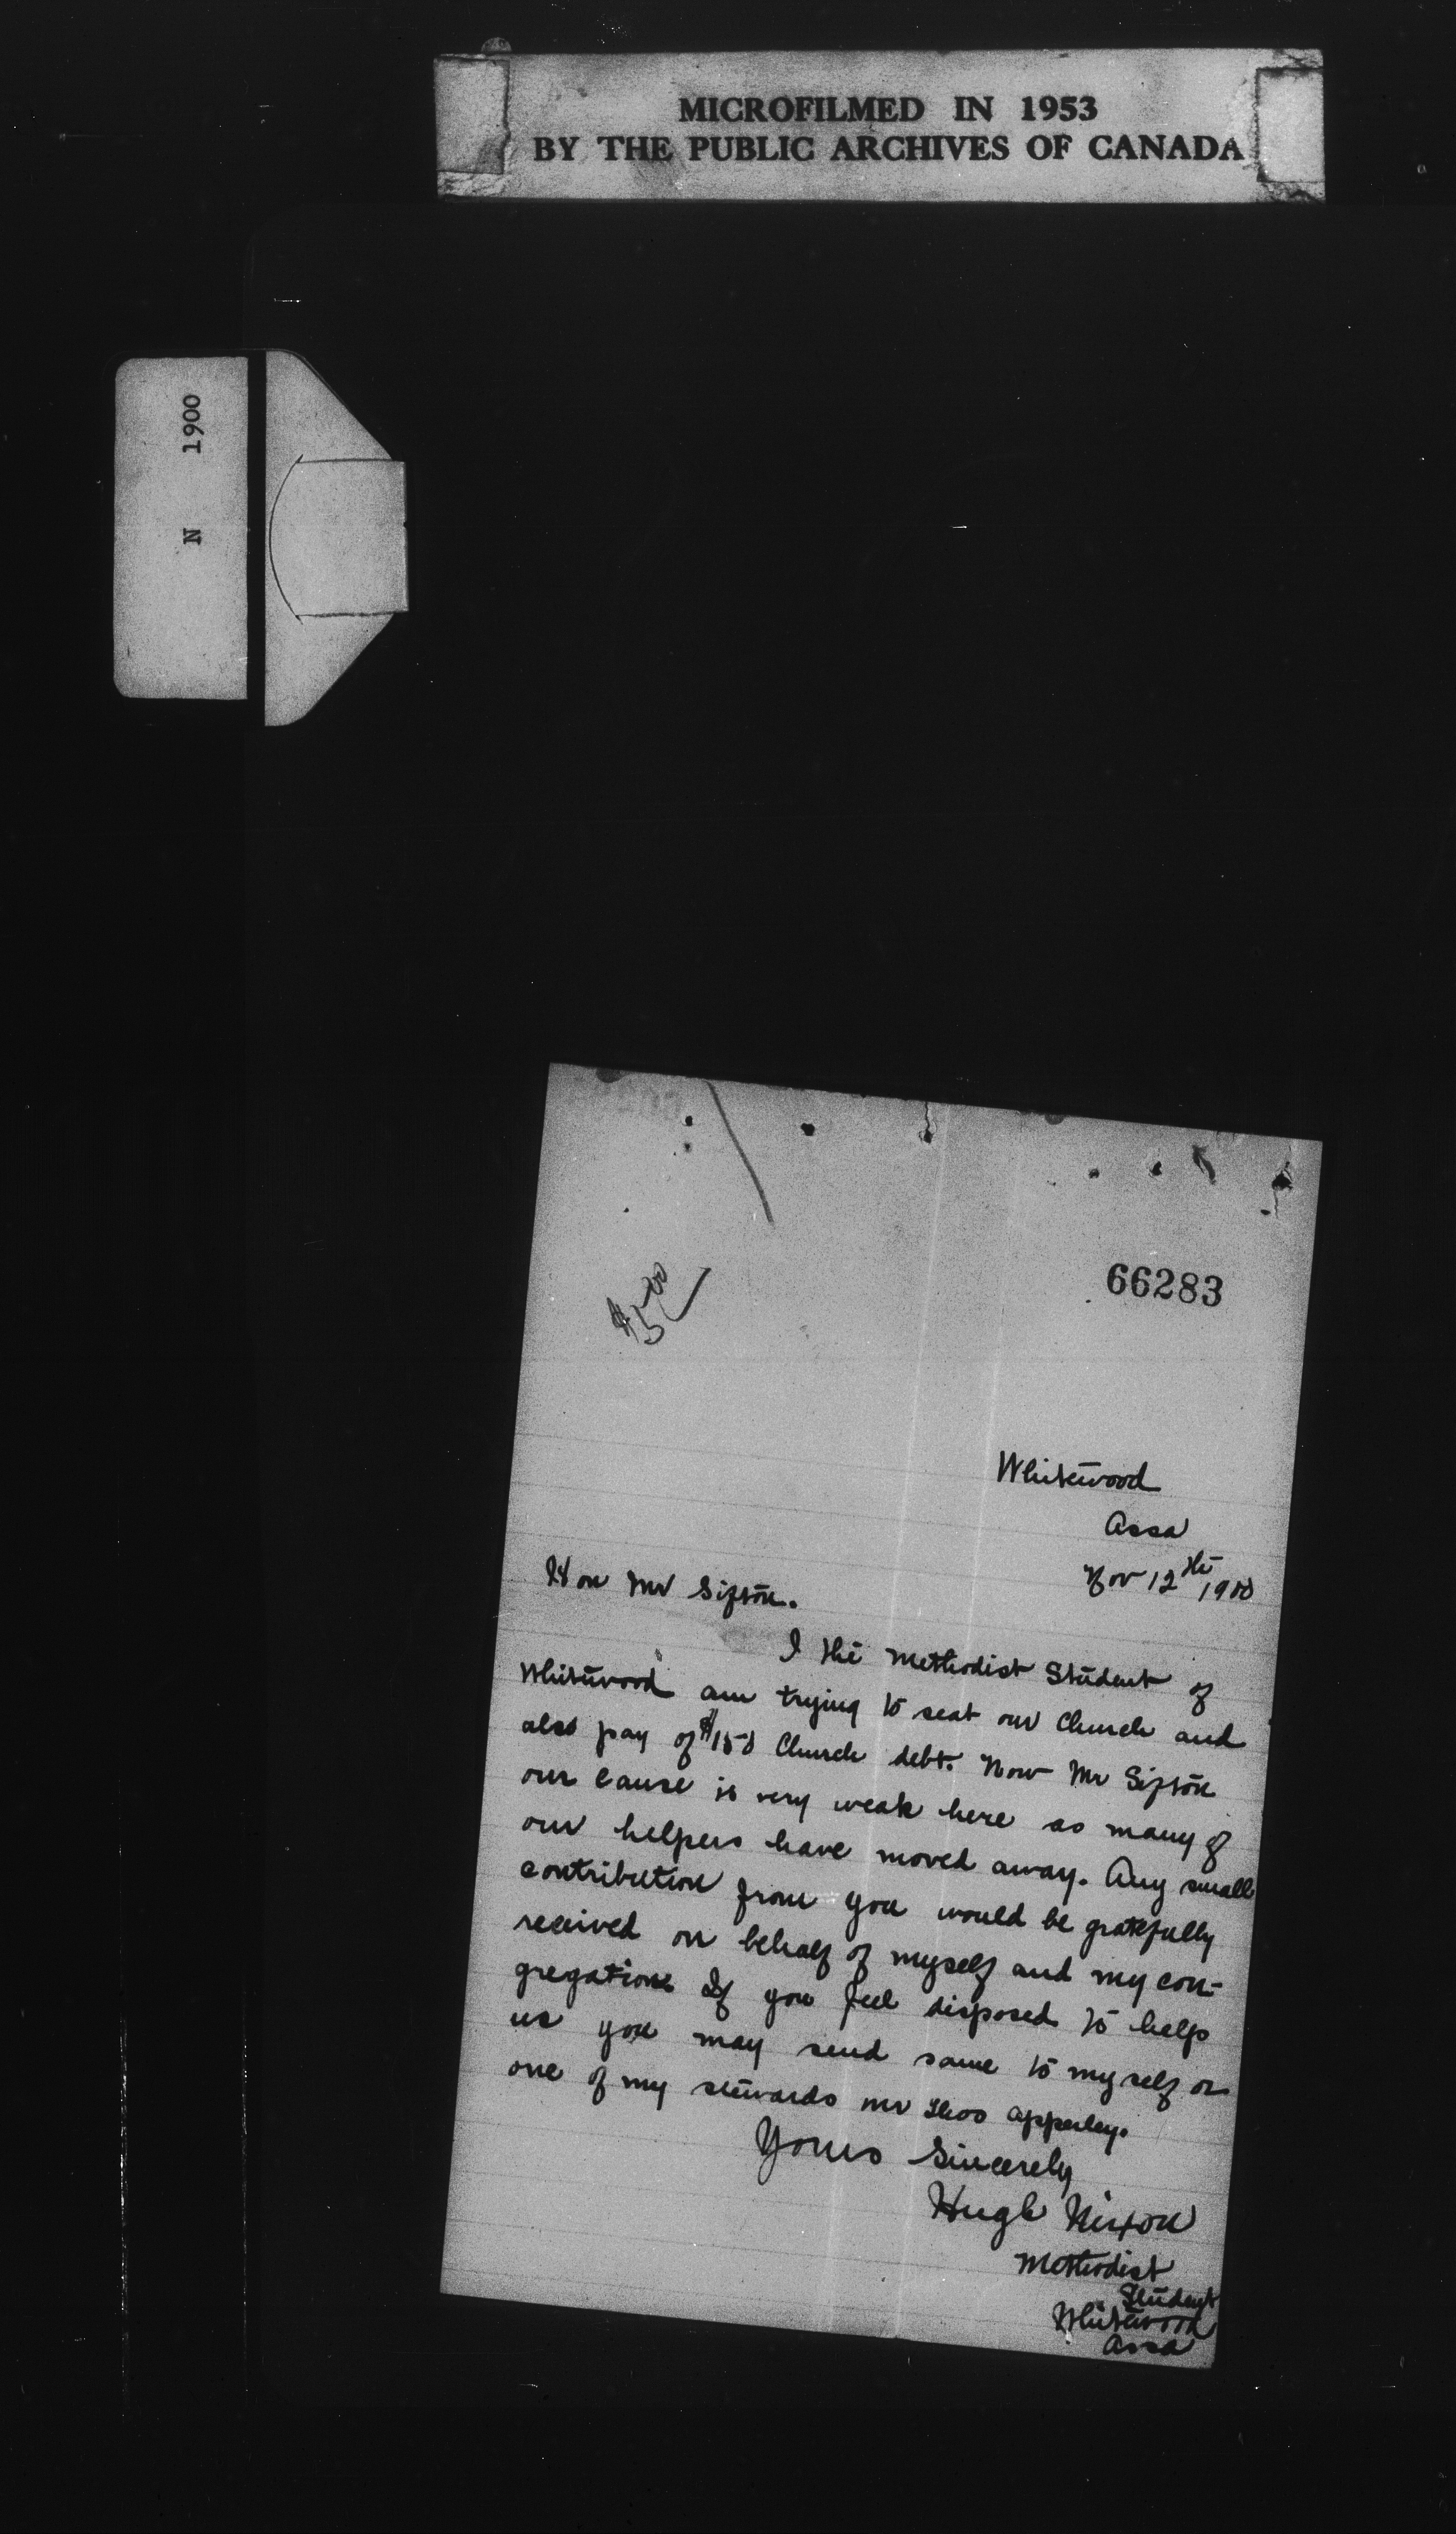 MICROFILMED IN 1953
BY THE PUBLIC ARCHIVES OF CANADA
N 1900
66283
$5.00
Whitewood
Assa
Nov 12th 1900
Hon Mr Sifton.
I the Methodist Student of
Whitewood am trying to seat our Church and
also pay of $150 Church debt. Now Mr Sifton
our cause is very weak here as many of
our helpers have moved away. Any small
contribution from you would be gratefully
received on behalf of myself and my con-
gregation. If you feel disposed to help
us you may send same to myself or
one of my stewards Mr Thos Apperley.
Yours Sincerely
Hugh Nixon
Methodist
Student
Whitewood
Assa